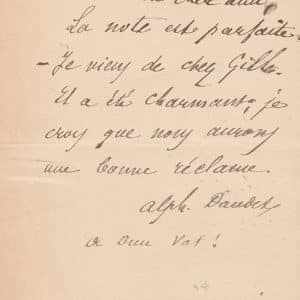 cher ami,
La note est parfaite.
- Je viens de chez Gille.
Il a été charmant; je
crois que nous aurons
une bonne réclame.
Alph. Daudet